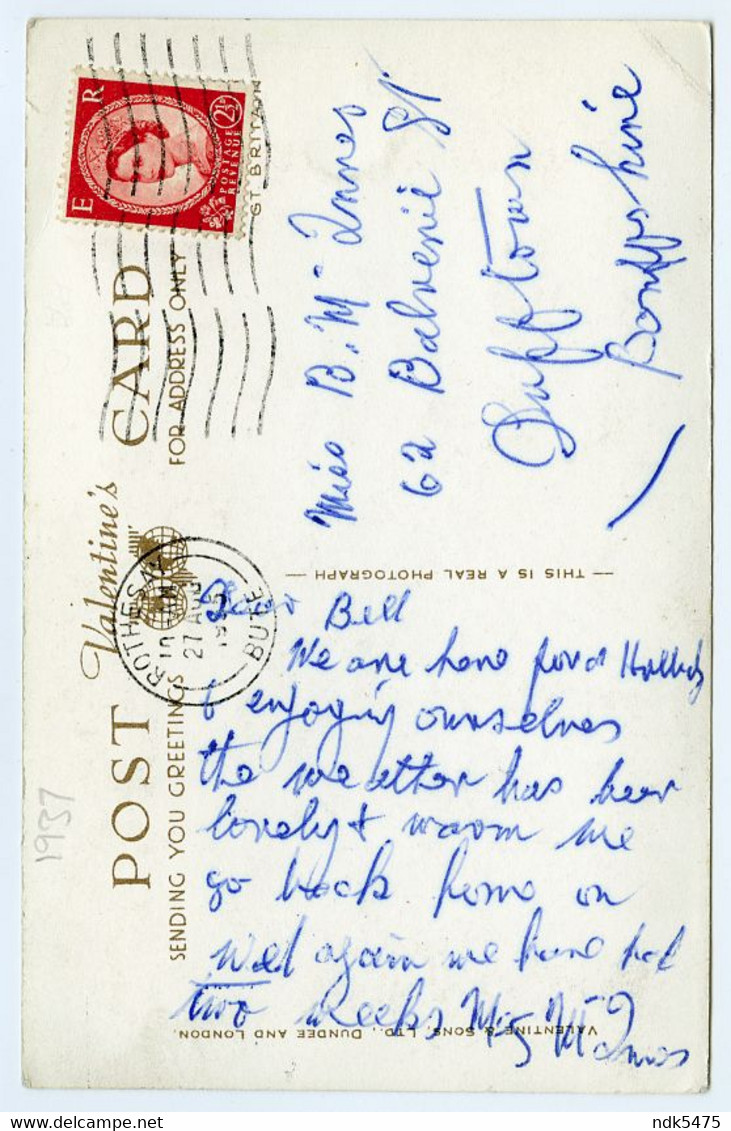 POST CARD
Valentine's
SENDING YOU GREETINGS
FOR ADDRESS ONLY
GT BRITAIN
E R
2½D
POSTAGE
REVENUE
ROTHESAY
10 AM
27 AUG
BUTE
1937
Miss B. McInnes
62 Balvenie St
Dufftown
Banffshire
— THIS IS A REAL PHOTOGRAPH —
Dear Bell
We are here for a
& enjoying ourselves
the weather has been
lovely & warm we
go back home on
Wed again we have had
two weeks
McInnes
VALENTINE & SONS, LTD., DUNDEE AND LONDON.
ndk5475